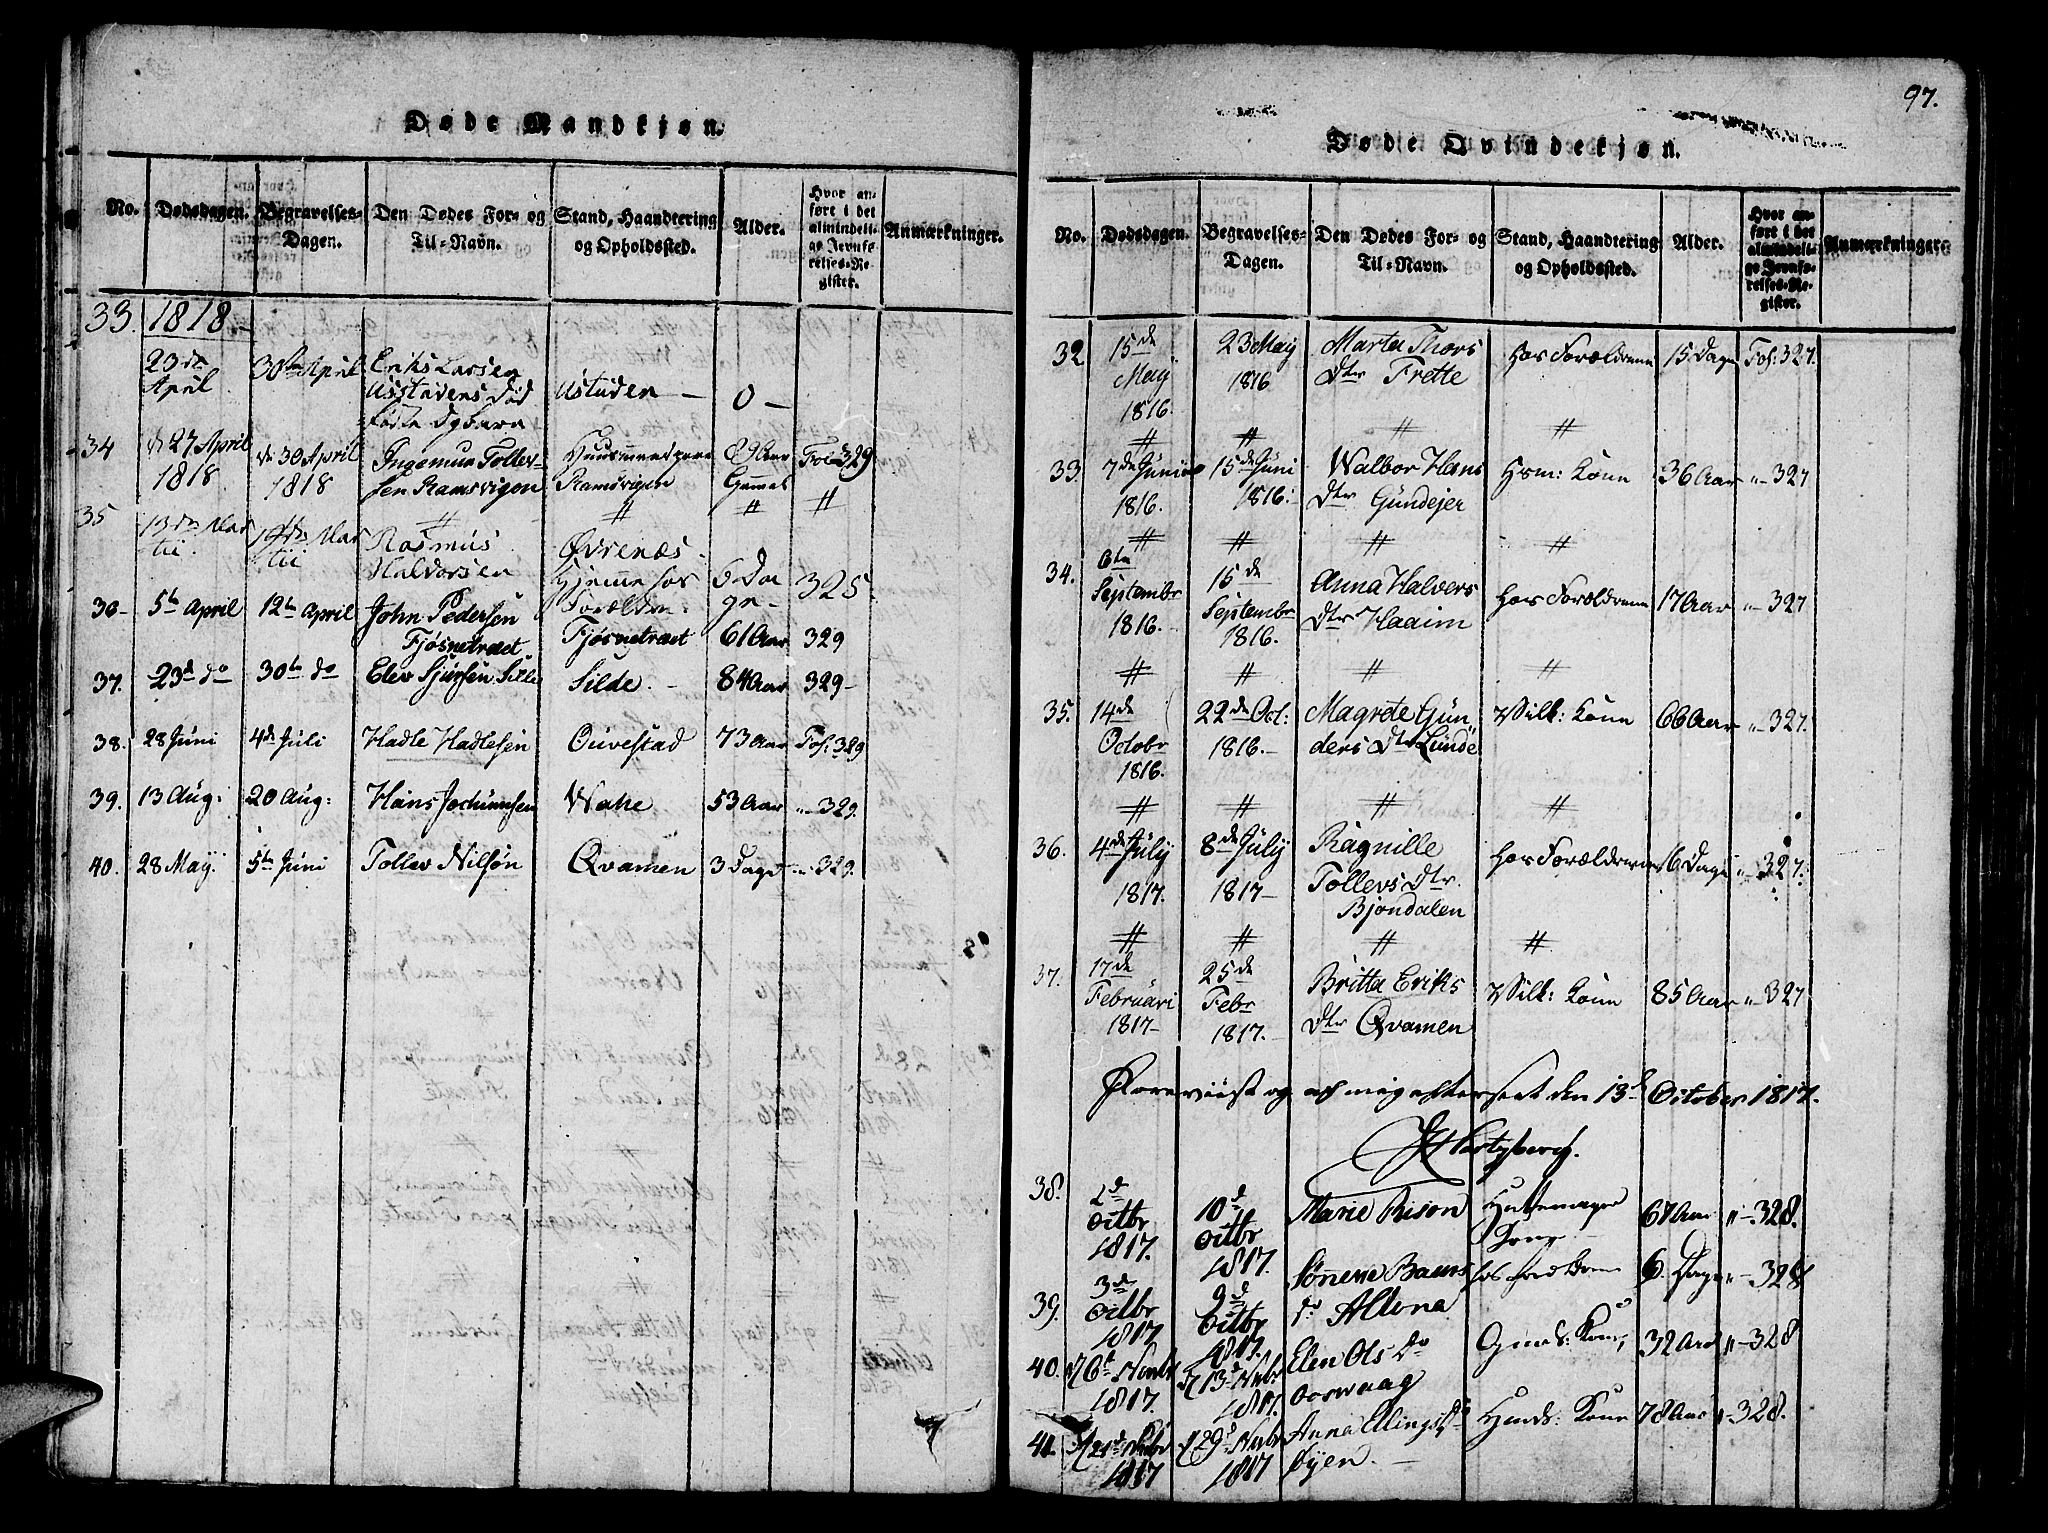 97.
Døde Mandkjøn.
No. Dødsdagen. Begravelses-Dagen. Den Dødes For- og Til-Navn. Stand, Haandtering og Opholdssted. Alder. Hvor anført i det almindelige Jevnførelses-Register. Anmærkninger.
33. 1818
23de April 30te April Eriks Larsen Usstuden — 0 —
34 27 April 1818 30 April 1818 Ingemun Tollevsen Ramsvigen Ramsvigen 89 Aar Fol 329
35 13de Martii Martii Rasmus Haldorsen Øvrenæs Hjemme hos Forældre 6 Dage 325
36 5te April 12te April John Pedersen Fjøsnetræt Fjøsnetræt 61 Aar 329
37. 23de do 30te do Elev Sjursen Silde Silde. 84 Aar 329
38. 28 Juni 4de Juli Hadle Hadlesen Ouvestad 73 Aar Fol. 329
39. 13 Aug: 20 Aug: Hans Jochumsen 53 Aar 329.
40. 28 May. 5te Juni Tollev Nilsøn Qvamen 3 Dage 329.
Døde Qvindekjøn.
No. Dødsdagen. Begravelses-Dagen. Den Dødes For- og Til-Navn. Stand, Haandtering og Opholdssted. Alder. Hvor anført i det almindelige Jevnførelses-Register. Anmærkninger.
32 15de Maij 1816. 23 Maij 1816 Marta Thors Dtr Frette Hos Forældrene 15 Dage Fol. 327.
33. 7de Junii 1816. 15de Juni 1816. Walbor Hans Dtr Gundejer Hsm: Kone 36 Aar 327
34. 6te Septembr 1816. 15de Septembr 1816. Anna Halvers Dtr Haaim Hos Forældrene 17 Aar 327
35. 14de Octobr 1816. 22de Oct: 1816. Magrete Gunders Dtr Lunde Kone 66 Aar 327.
36. 4de July 1817. 8de July 1817 Ragnille Tollevs Dtr. Bjøndalen Hos Forældrene 16 Dage 327.
37. 17de Februari 1817 25de Febr 1817. Britta Eriks Dtr Qvamen Kone 85 Aar 327
Foreviist og af mig efterseet den 13de October 1817.
Hertzberg.
38. 2d Octbr 1817. 10d Octbr 1817. Marie Rison 67 Aar 328.
39. 3de Octbr 1817. 9d Octbr 1817. Baars Dr Altona 6 Dage 328
40. 6t Novbr 1817. 13d Novbr 1817. Elen Ols Do Ooswaag Kone 32 Aar 328
41 21d Novbr 1817 29d Novbr 1817 Anna Ellings Dr Øyen. Kone 78 Aar 328.